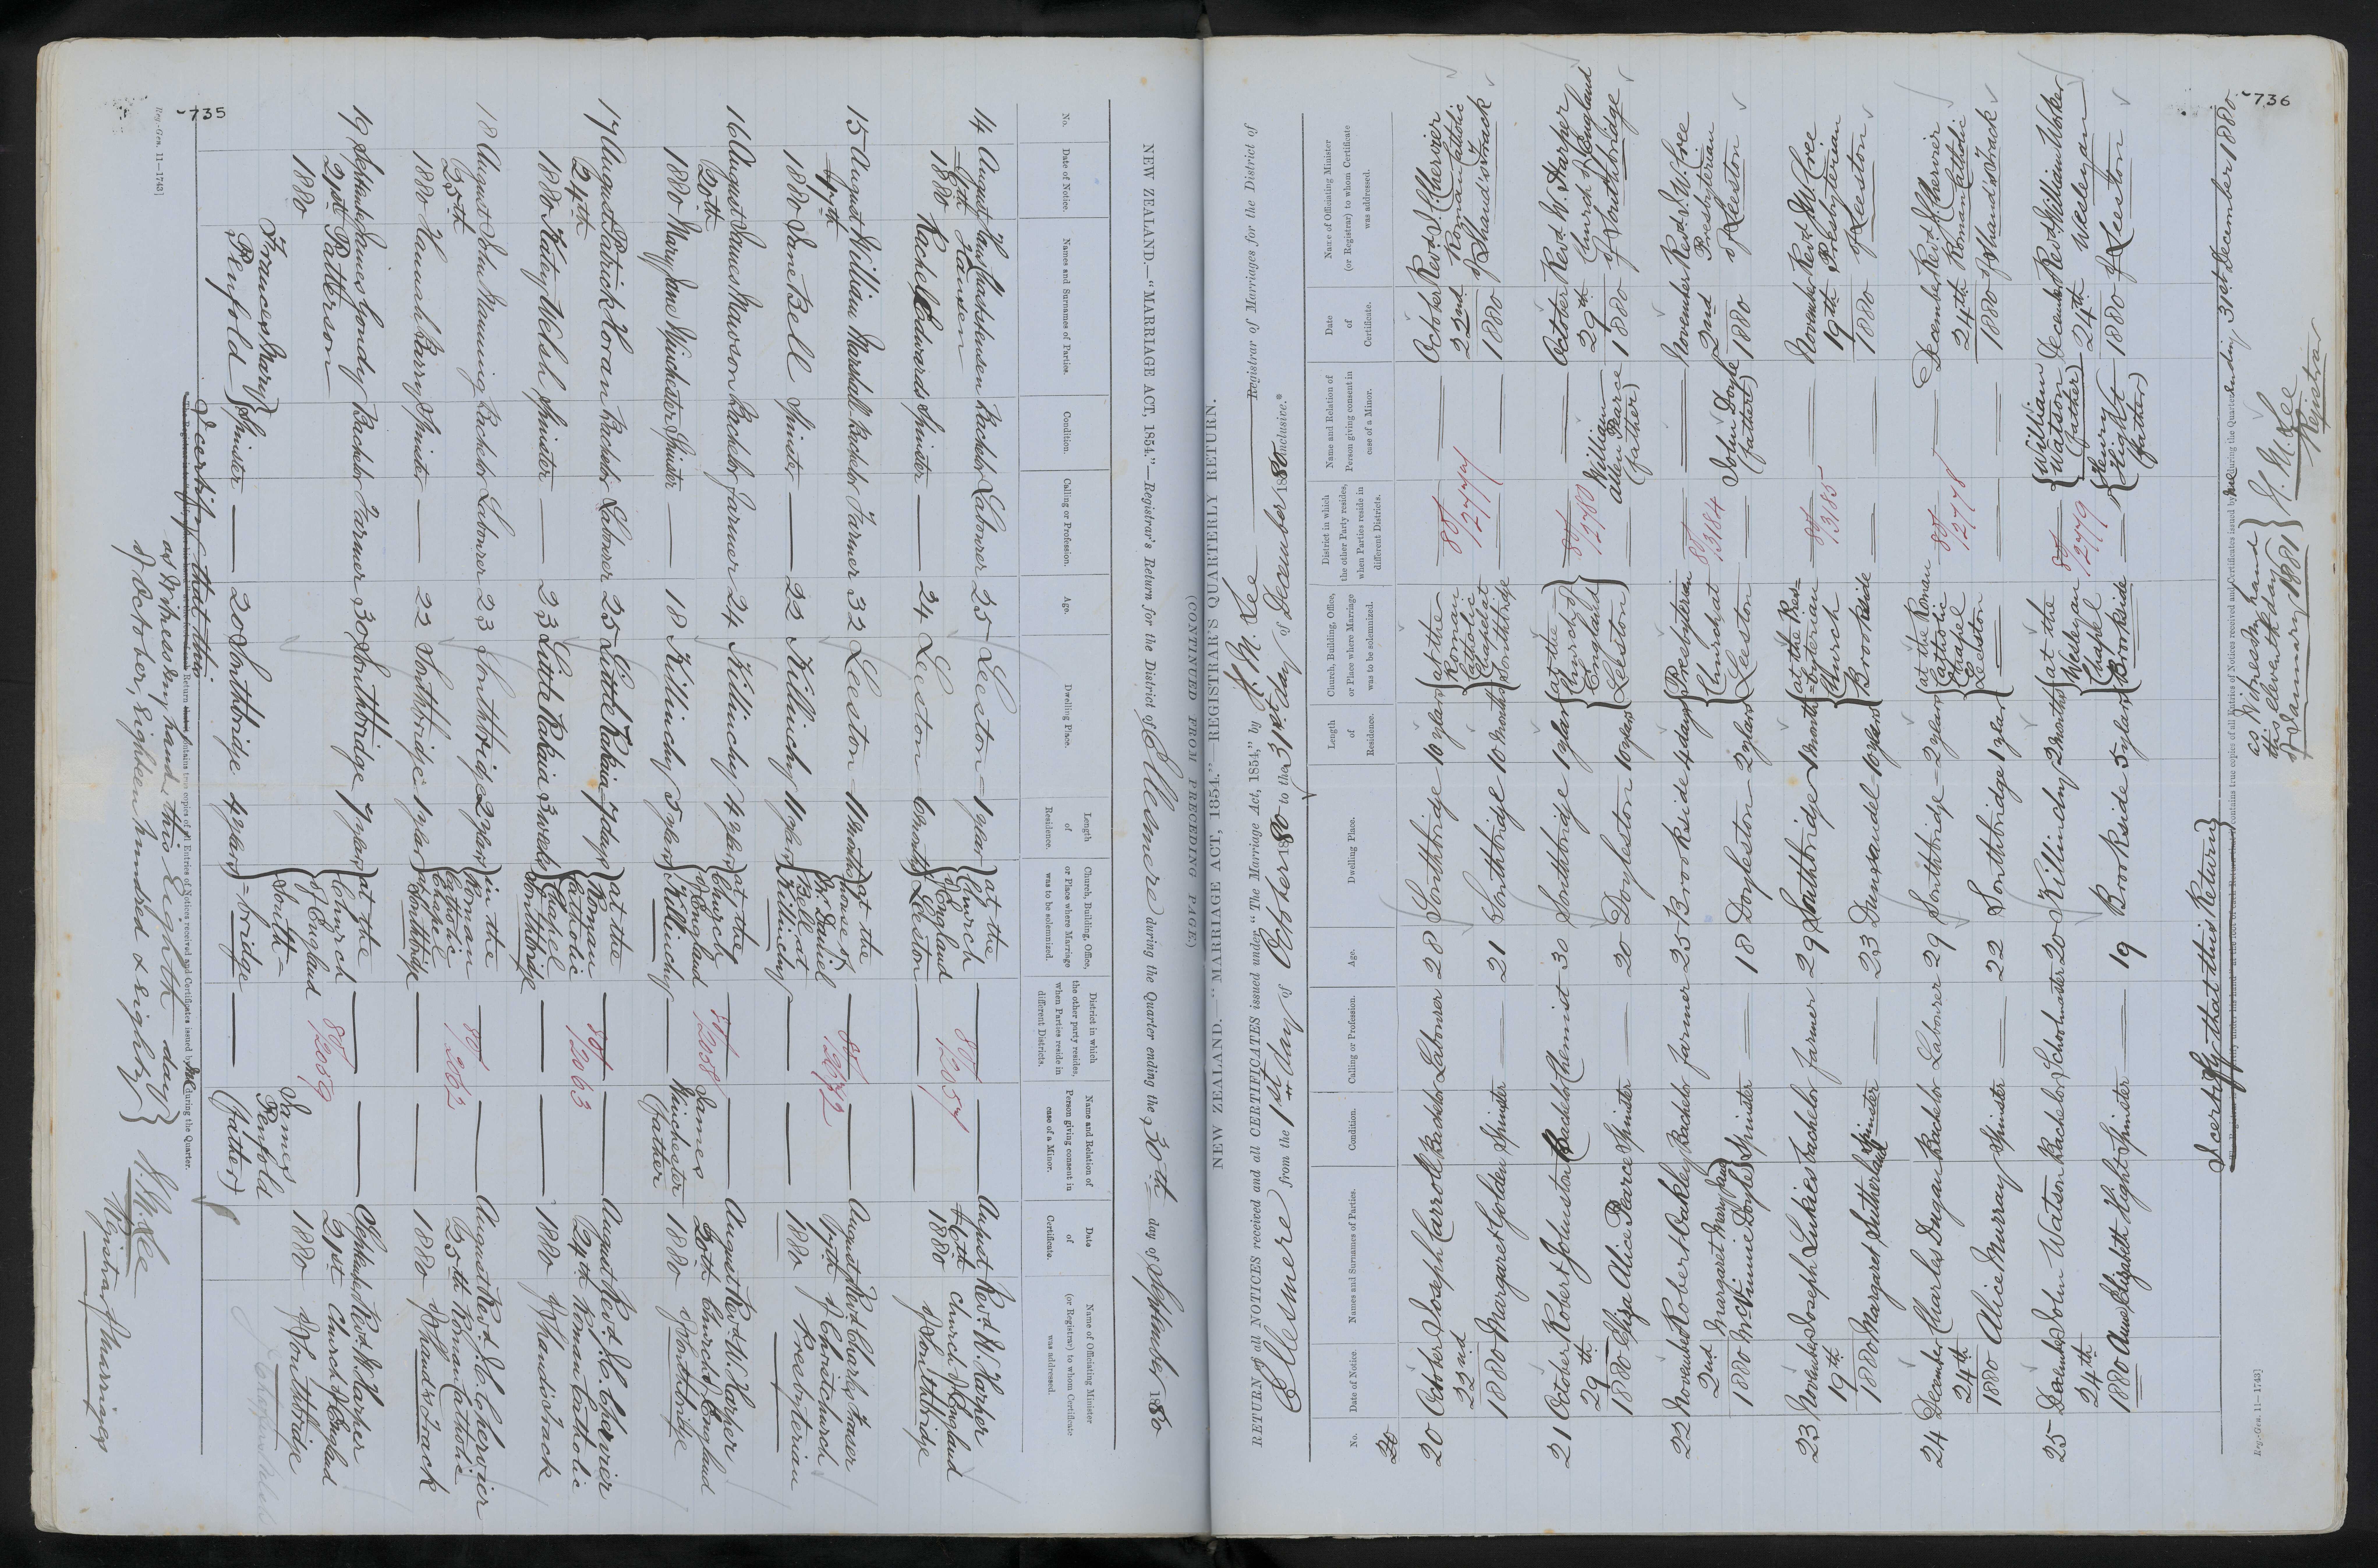 735
(CONTINUED FROM PRECEDING PAGE)
NEW ZEALAND.—"MARRIAGE ACT, 1854."—Registrar's Return for the District of Ellesmere during the Quarter ending the 30th day of September 1880
No. Date of Notice. Names and Surnames of Parties. Condition. Calling or Profession. Age. Dwelling Place. Length of Residence. Church, Building, Office, or Place where Marriage was to be solemnized. District in which the other party resides, when Parties reside in different Districts. Name and Relation of Person giving consent in case of a Minor. Date of Certificate. Name of Officiating Minister (or Registrar) to whom Certificate was addressed.
14 August Bachelor Labourer 25 Leeston 1 year at the Church of England Leeston 80/2057 August Revd. W. Harper
1880 Hansen
Rachel Edwards Spinster — 24 Leeston 6 months 1880 Church of England of Southbridge
15 August William Marshall Bachelor Farmer 32 Leeston 11 months at the house of Mr Daniel Bell at Killinchy August Revd. Charles Fraser
1880 Jane Bell Spinster — 22 Killinchy 11 years 1880 of Christchurch Presbyterian
16 August James Mawson Bachelor farmer 24 Killinchy 4 years at the Church of England Killinchy 80/2058 James Winchester father August Revd. W. Harper
20th
1880 Mary Jane Winchester Spinster — 18 Killinchy 5 years 20th 1880 Church of England of Southbridge
17 August Patrick Horan Bachelor Labourer 25 Little Rakaia 7 days at the Roman Catholic Chapel Southbridge 80/2063 August Revd. J. C. Chervier
24th
1880 Katey Welsh Spinster — 23 Little Rakaia 3 weeks 24th 1880 Roman Catholic of Shand's Track
18 August John Manning Bachelor Labourer 23 Southbridge 2 years in the Roman Catholic Chapel at Southbridge 80/2062 August Revd. J. C. Chervier
25th
1880 Hannah Barry Spinster — 22 Southbridge 1 year 25th 1880 Roman Catholic of Shand's Track
19 September James Gondy Bachelor Farmer 30 Southbridge 7 years at the Church of England South=bridge 80/2059 James Penfold (father) September Revd. W. Harper
21st Patterson
1880 Frances Mary Penfold Spinster — 20 Southbridge 4 years 21st 1880 Church of England of Southbridge
I certify that this Return contains true copies of all Entries of Notices received and Certificates issued by me during the Quarter.
as Witness my hand this Eighth day
of October, Eighteen hundred & eighty
H. M. Lee
Registrar of Marriages
Reg.-Gen. 11—1743]
736
NEW ZEALAND.—"MARRIAGE ACT, 1854."—REGISTRAR'S QUARTERLY RETURN.
RETURN of all NOTICES received and all CERTIFICATES issued under "The Marriage Act, 1854," by H. M. Lee Registrar of Marriages for the District of
Ellesmere from the 1st day of October 1880 to the 31st day of December 1880 inclusive.*
No. Date of Notice. Names and Surnames of Parties. Condition. Calling or Profession. Age. Dwelling Place. Length of Residence. Church, Building, Office, or Place where Marriage was to be solemnized. District in which the other Party resides, when Parties reside in different Districts. Name and Relation of Person giving consent in case of a Minor. Date of Certificate. Name of Officiating Minister (or Registrar) to whom Certificate was addressed.
20
20 October Joseph Carroll Bachelor Labourer 28 Southbridge 10 years at the Roman Catholic Chapel at Southbridge 80/2777 October Revd. J. Chervier
22nd
1880 Margaret Golden Spinster — 21 Southbridge 10 months 22nd 1880 Roman Catholic of Shand's Track
21 October Robert Johnston Bachelor Chemist 30 Southbridge 1 year at the Church of England Leeston 80/2780 William Allen Pearce (father) October Revd. W. Harper
29th
1880 Eliza Alice Pearce Spinster — 20 Doyleston 10 years 29th 1880 Church of England of Southbridge
22 November Robert Oakley Bachelor farmer 25 Brookside 4 days Presbyterian Church at Leeston 80/3184 John Doyle (father) November Revd. W. Cree
2nd Margaret Mary Jane
1880 McVinnie Doyle Spinster — 18 Doyleston 2 years 2nd 1880 Presbyterian of Leeston
23 November Joseph Lukies Bachelor farmer 29 Southbridge 1 month at the Presbyterian Church Brookside 80/3185 November Revd. W. Cree
19th
1880 Margaret Sutherland Spinster 23 Dunsandel 10 years 19th 1880 Presbyterian of Leeston
24 December Charles Dugan Bachelor Labourer 29 Southbridge 2 years at the Roman Catholic Chapel Leeston 80/2778 December Revd. J. Chervier
24th
1880 Alice Murray Spinster — 22 Southbridge 1 year 24th 1880 Roman Catholic of Shand's Track
25 December John Watson Bachelor Schoolmaster 20 Killinchy 2 months at the Wesleyan Chapel Brookside 80/2779 William Watson (father) December Revd. William Worker
24th
1880 Anne Elizabeth Hight Spinster — 19 Brookside 5 years Henry Hight (father) 24th 1880 Wesleyan of Leeston
I certify that this Return contains true copies of all Entries of Notices received and Certificates issued by me during the Quarter ending 31st December 1880
as Witness my hand
this eleventh day
of January 1881
H. M. Lee
Registrar
Reg.-Gen. 11—1743]